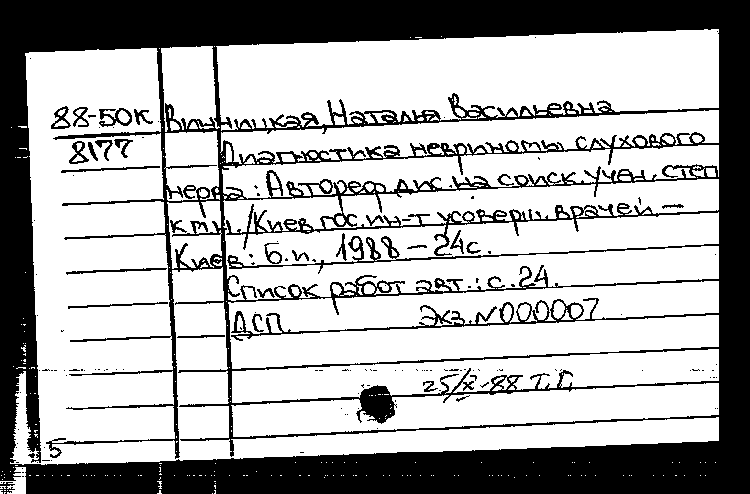 88-50К Винницкая, Наталия Васильевна
8177 Диагностика невриномы слухового
нерва: Автореф. дис. на соиск. учен. степ
к.м.н. / Киев. гос. ин-т усоверш. врачей. —
Киев: Б.и., 1988 — 24с.
Список работ авт.: с. 24.
ДСП. Экз. N000007
25/X-88 Т.Г.
5